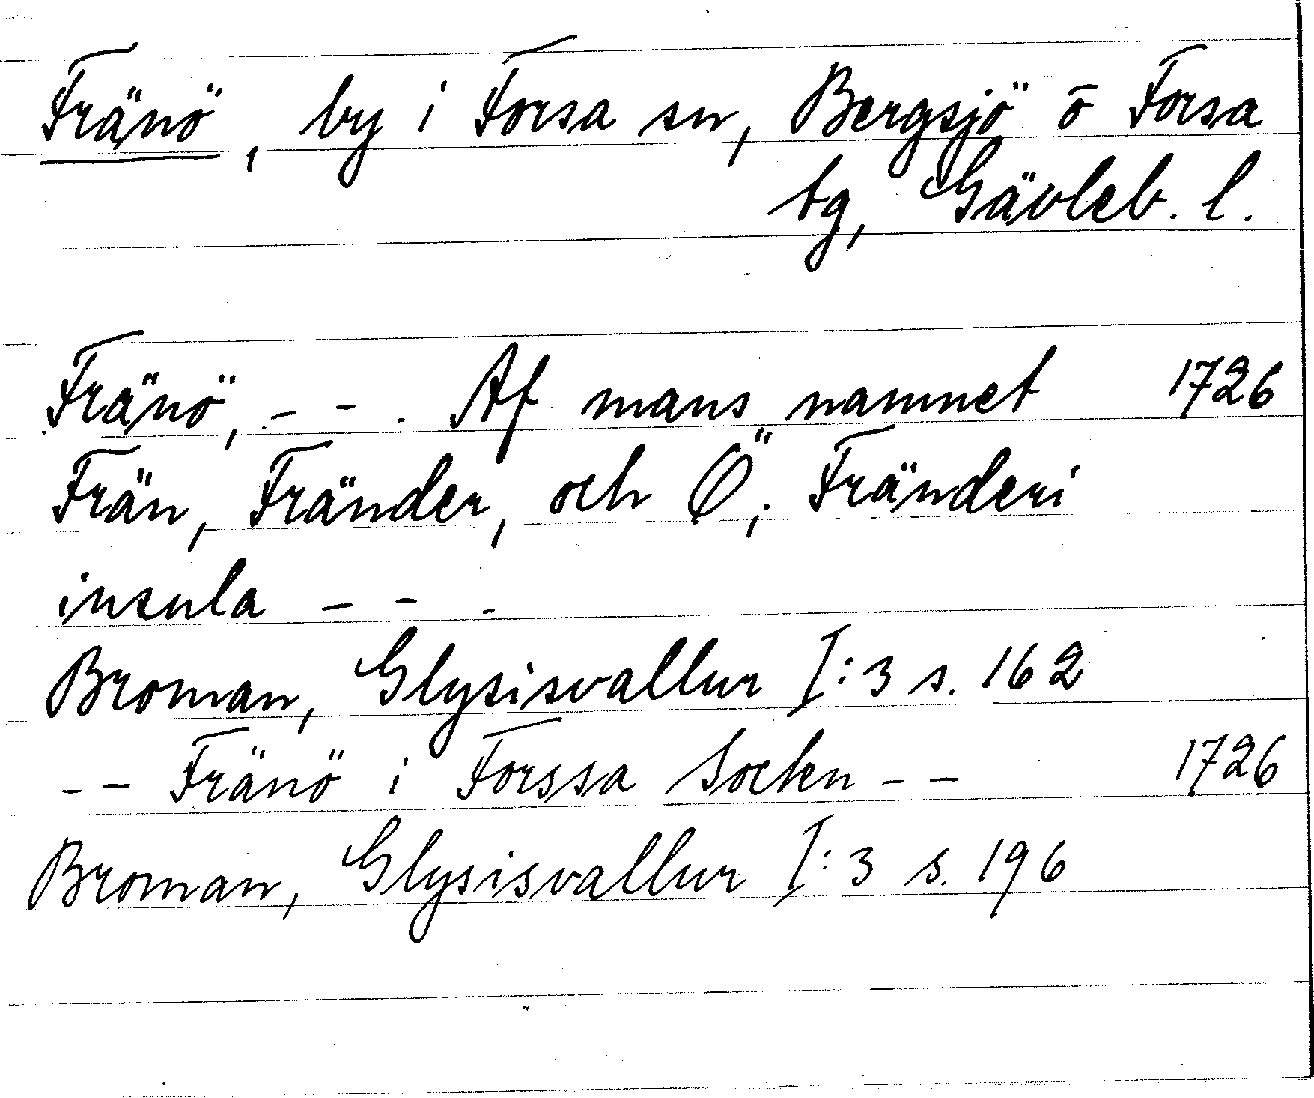 Fränö, by i Forsa sn, Bergsjö o Forsa
tg, Gävleb. l.
Fränö, - - . Af mans namnet 1726
Frän, Fränder, och Ö; Fränderi
insula - - .
Broman, Glysisvallur I:3 s. 162
- - Fränö i Forssa Socken - - 1726
Broman, Glysisvallur I:3 s. 196